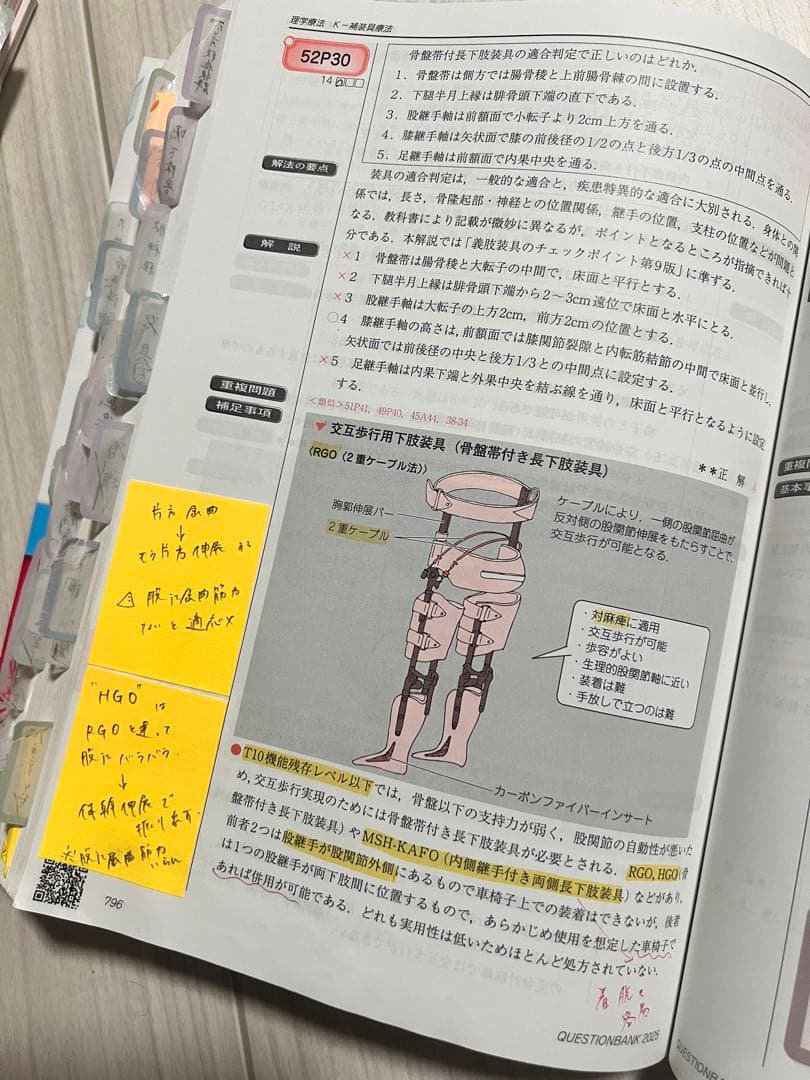 理学療法 K－補装具療法
52P30
14
骨盤帯付長下肢装具の適合判定で正しいのはどれか．
1．骨盤帯は側方では腸骨稜と上前腸骨棘の間に設置する．
2．下腿半月上縁は腓骨頭下端の直下である．
3．股継手軸は前額面で小転子より2cm上方を通る．
4．膝継手軸は矢状面で膝の前後径の1/2の点と後方1/3の点の中間点を通る．
5．足継手軸は前額面で内果中央を通る．
解法の要点
装具の適合判定は，一般的な適合と，疾患特異的な適合に大別される．身体との関
係では，長さ，骨隆起部・神経との位置関係，継手の位置，支柱の位置などが問題と
なる．教科書により記載が微妙に異なるが，ポイントとなるところが指摘できれば十
分である．本解説では「義肢装具のチェックポイント第9版」に準ずる．
解説
×1 骨盤帯は腸骨稜と大転子の中間で，床面と平行とする．
×2 下腿半月上縁は腓骨頭下端から2～3cm遠位で床面と水平にとる．
×3 股継手軸は大転子の上方2cm，前方2cmの位置とする．
○4 膝継手軸の高さは，前額面では膝関節裂隙と内転筋結節の中間で床面と並行し，
矢状面では前後径の中央と後方1/3との中点に設定する．
×5 足継手軸は内果下端と外果中央を結ぶ線を通り，床面と平行となるように設定
する．
＊＊正 解 4
重複問題
＜類似＞51P41，49P40，45A44，38-34
補足事項
▼交互歩行用下肢装具（骨盤帯付き長下肢装具）
〈RGO（2重ケーブル法）〉
胸郭伸展バー
2重ケーブル
ケーブルにより，一側の股関節屈曲が
反対側の股関節伸展をもたらすことで，
交互歩行が可能となる．
・対麻痺に適用
・交互歩行が可能
・歩容がよい
・生理的股関節軸に近い
・装着は難
・手放しで立つのは難
カーボンファイバーインサート
●T10機能残存レベル以下では，骨盤以下の支持力が弱く，股関節の自動性が悪いた
め，交互歩行実現のためには骨盤帯付き長下肢装具が必要とされる．RGO，HGO（骨
盤帯付き長下肢装具）やMSH-KAFO（内側継手付き両側長下肢装具）などがあり，
前者2つは股継手が股関節外側にあるもので車椅子上での装着はできないが，後者
は1つの股継手が両下肢間に位置するもので，あらかじめ使用を想定した車椅子で
あれば併用が可能である．どれも実用性は低いためほとんど処方されていない．
片方 屈曲
↓
もう片方 伸展
⚠ 股に屈曲筋力
ないと 適応×
"HGO" は
RGOと違って
股にバラバラ．
↓
体幹伸展で
振り出す．
796
QUESTIONBANK 2025
QUESTIONBANK 2025
重複問
基本事